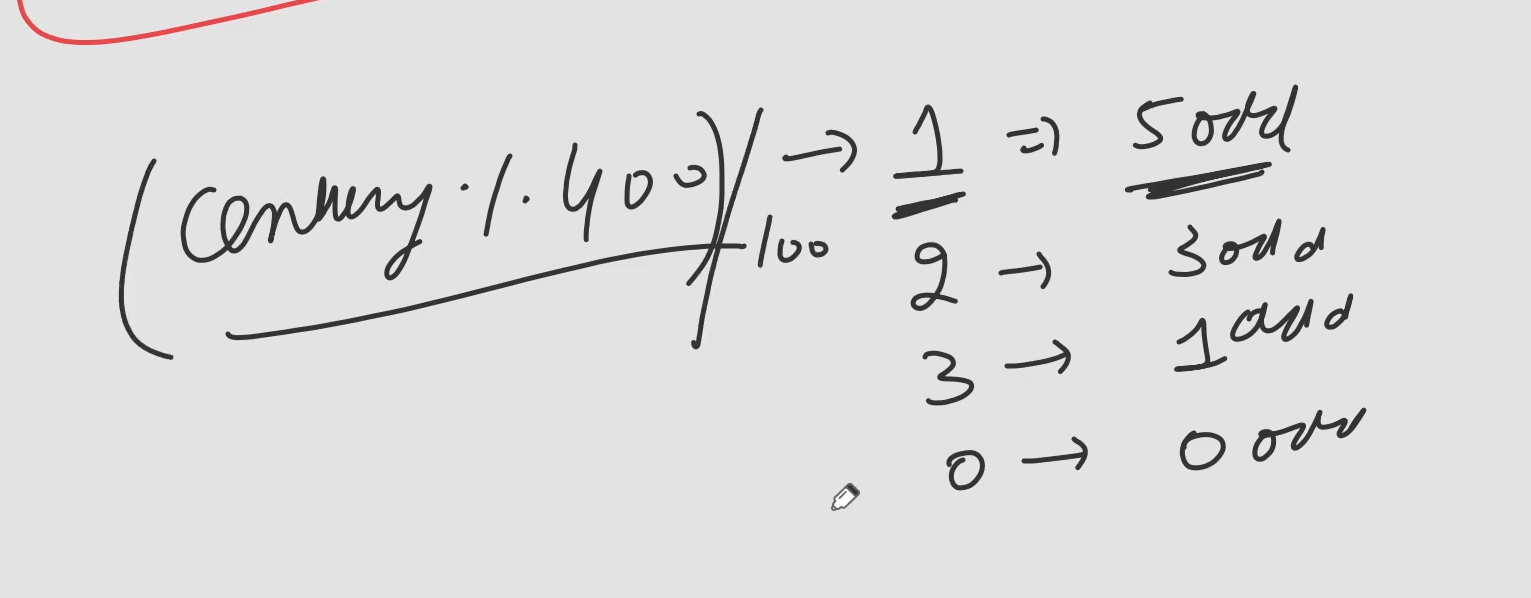 (Century % 400) / 100 → 1 ⇒ 5 odd
2 → 3 odd
3 → 1 odd
0 → 0 odd